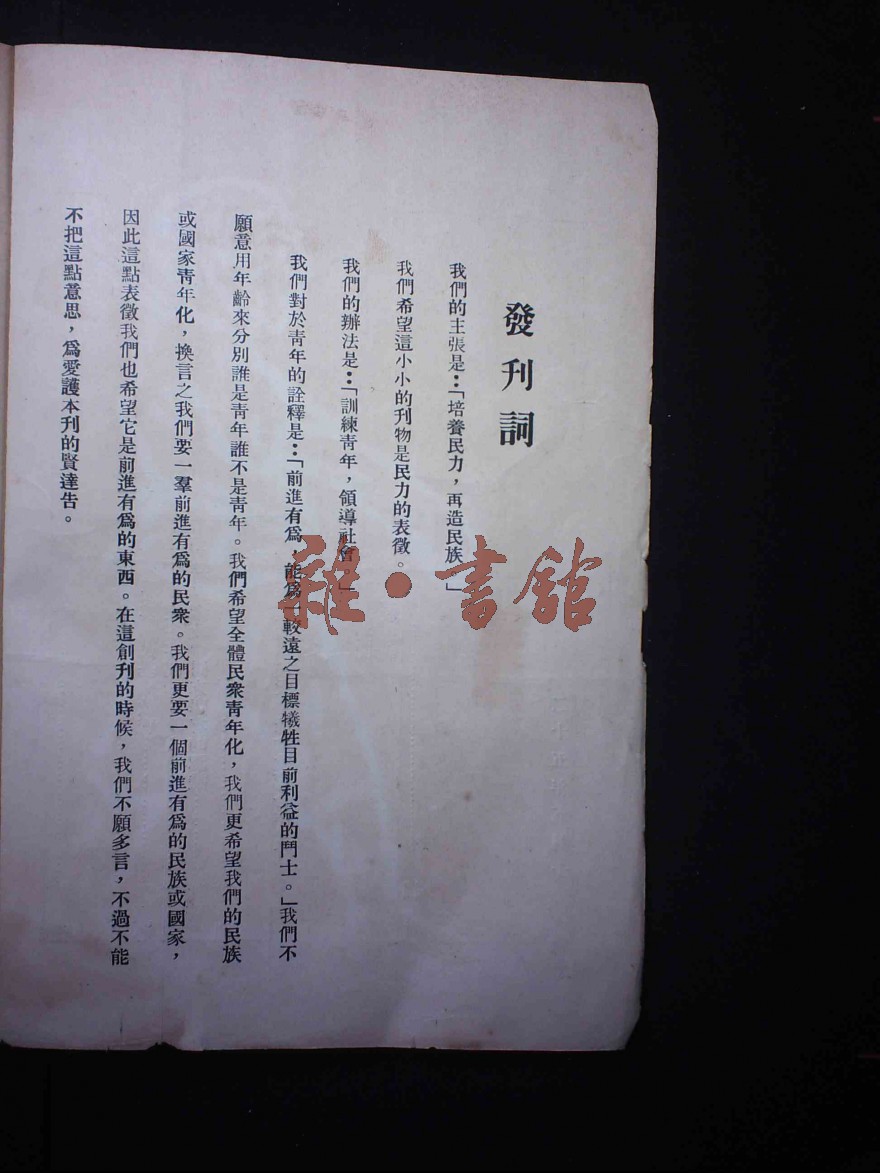 發刊詞
我們的主張是：「培養民力，再造民族」
我們希望這小小的刊物是民力的表徵。
我們的辦法是：「訓練青年，領導社會」
我們對於青年的詮釋是：「前進有為，能為一較遠之目標犧牲目前利益的鬥士。」我們不
願意用年齡來分別誰是青年誰不是青年。我們希望全體民衆青年化，我們更希望我們的民族
或國家青年化，換言之我們要一羣前進有為的民衆。我們更要一個前進有為的民族或國家，
因此這點表徵我們也希望它是前進有為的東西。在這創刊的時候，我們不願多言，不過不能
不把這點意思，為愛護本刊的賢達告。
雜·書館